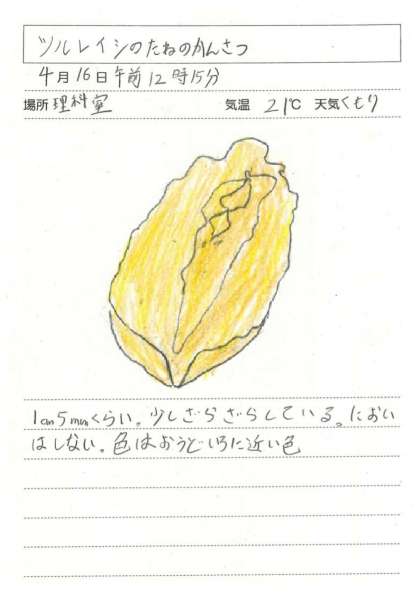 ツルレイシのたねのかんさつ
4月16日午前12時15分
場所 理科室 気温 21℃ 天気 くもり
1cm5mmくらい。少しざらざらしている。におい
はしない。色はおうどいろに近い色